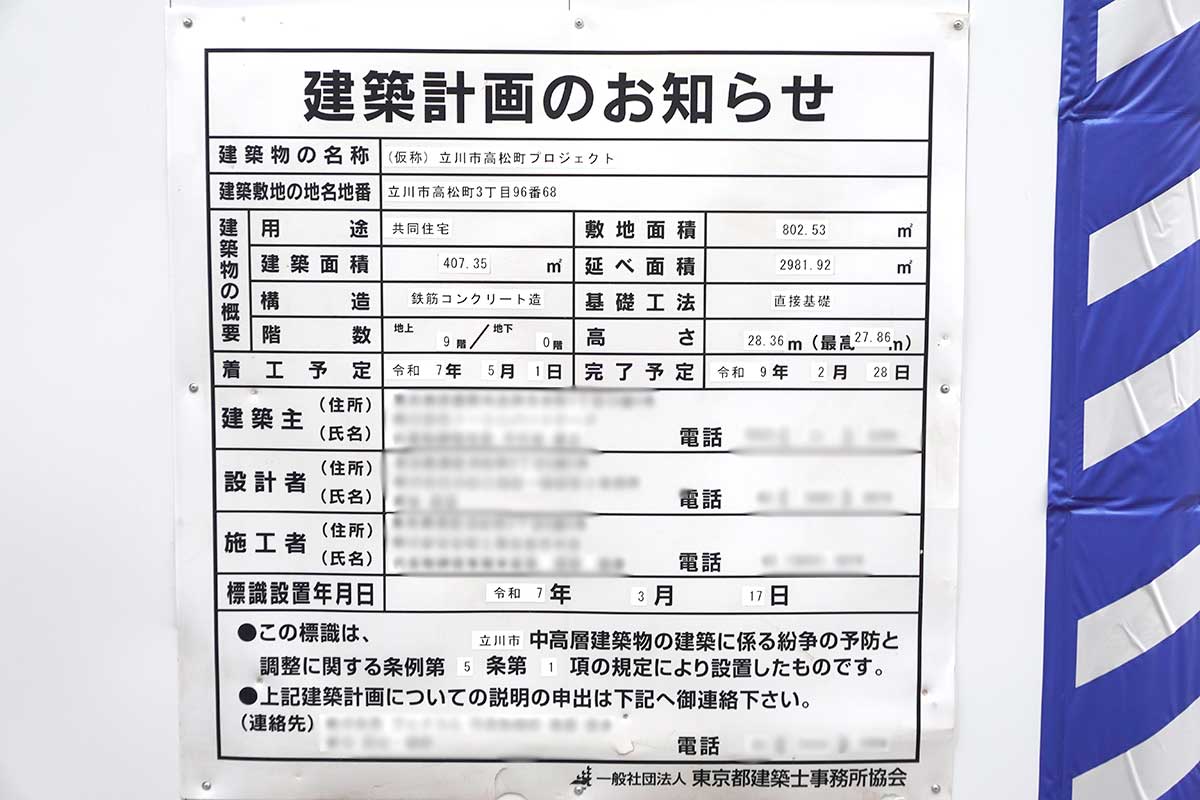 建築計画のお知らせ
建築物の名称 (仮称)立川市高松町プロジェクト
建築敷地の地名地番 立川市高松町3丁目96番68
建築物の概要
用途 共同住宅 敷地面積 802.53 ㎡
建築面積 407.35 ㎡ 延べ面積 2981.92 ㎡
構造 鉄筋コンクリート造 基礎工法 直接基礎
階数 地上 9階/地下 0階 高さ 28.36m(最高27.86m)
着工予定 令和 7年 5月 1日 完了予定 令和 9年 2月 28日
建築主 (住所)
(氏名) 電話
設計者 (住所)
(氏名) 電話
施工者 (住所)
(氏名) 電話
標識設置年月日 令和 7年 3月 17日
●この標識は、 立川市 中高層建築物の建築に係る紛争の予防と
調整に関する条例第 5 条第 1 項の規定により設置したものです。
●上記建築計画についての説明の申出は下記へ御連絡下さい。
(連絡先)
電話
一般社団法人 東京都建築士事務所協会